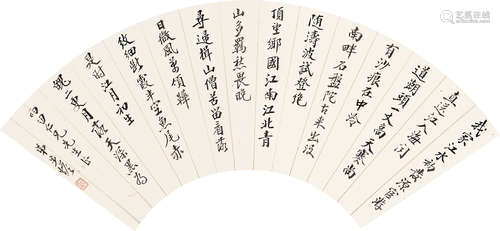 我家江水初發源宦遊
直送江入海聞
道潮頭一丈高天寒尚
有沙痕在中泠
南畔石盤陀古來出没
隨濤波試登絶
頂望鄉國江南江北青
山多羈愁畏晚
尋歸楫山僧苦留看落
日微風萬頃鞾
紋細斷霞半空魚尾赤
是時江月初生
魄二更月落天深黑
仁兄先生正
弟